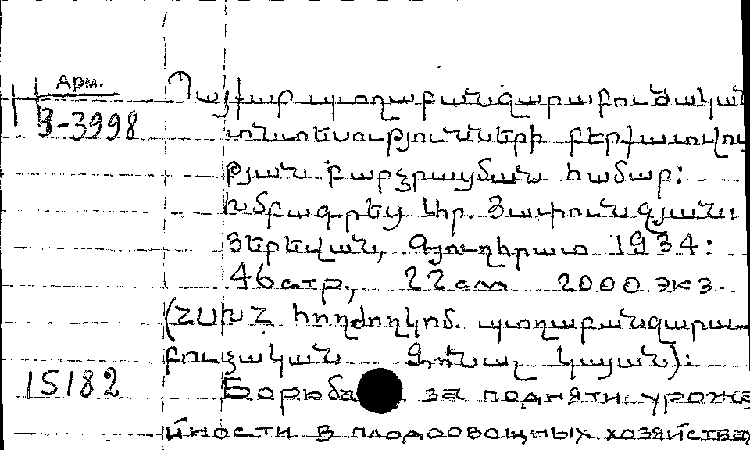 Арм.
Պայքար պտղաբանջարաբուծական
3-3998
տնտեսությունների բերքատվու
թյան բարձրացման համար:
Խմբագրեց Եր.
Յերեվան, Գյուղհրատ 1934:
46 стр, 22 см 2000 экз.
(ՀՍԽՀ հողժողկոմ. պտղաբանջարա-
բուծական Զոնալ կայան):
15182
Борьба за подняти уроже
йности в плодоовощных хозяйства